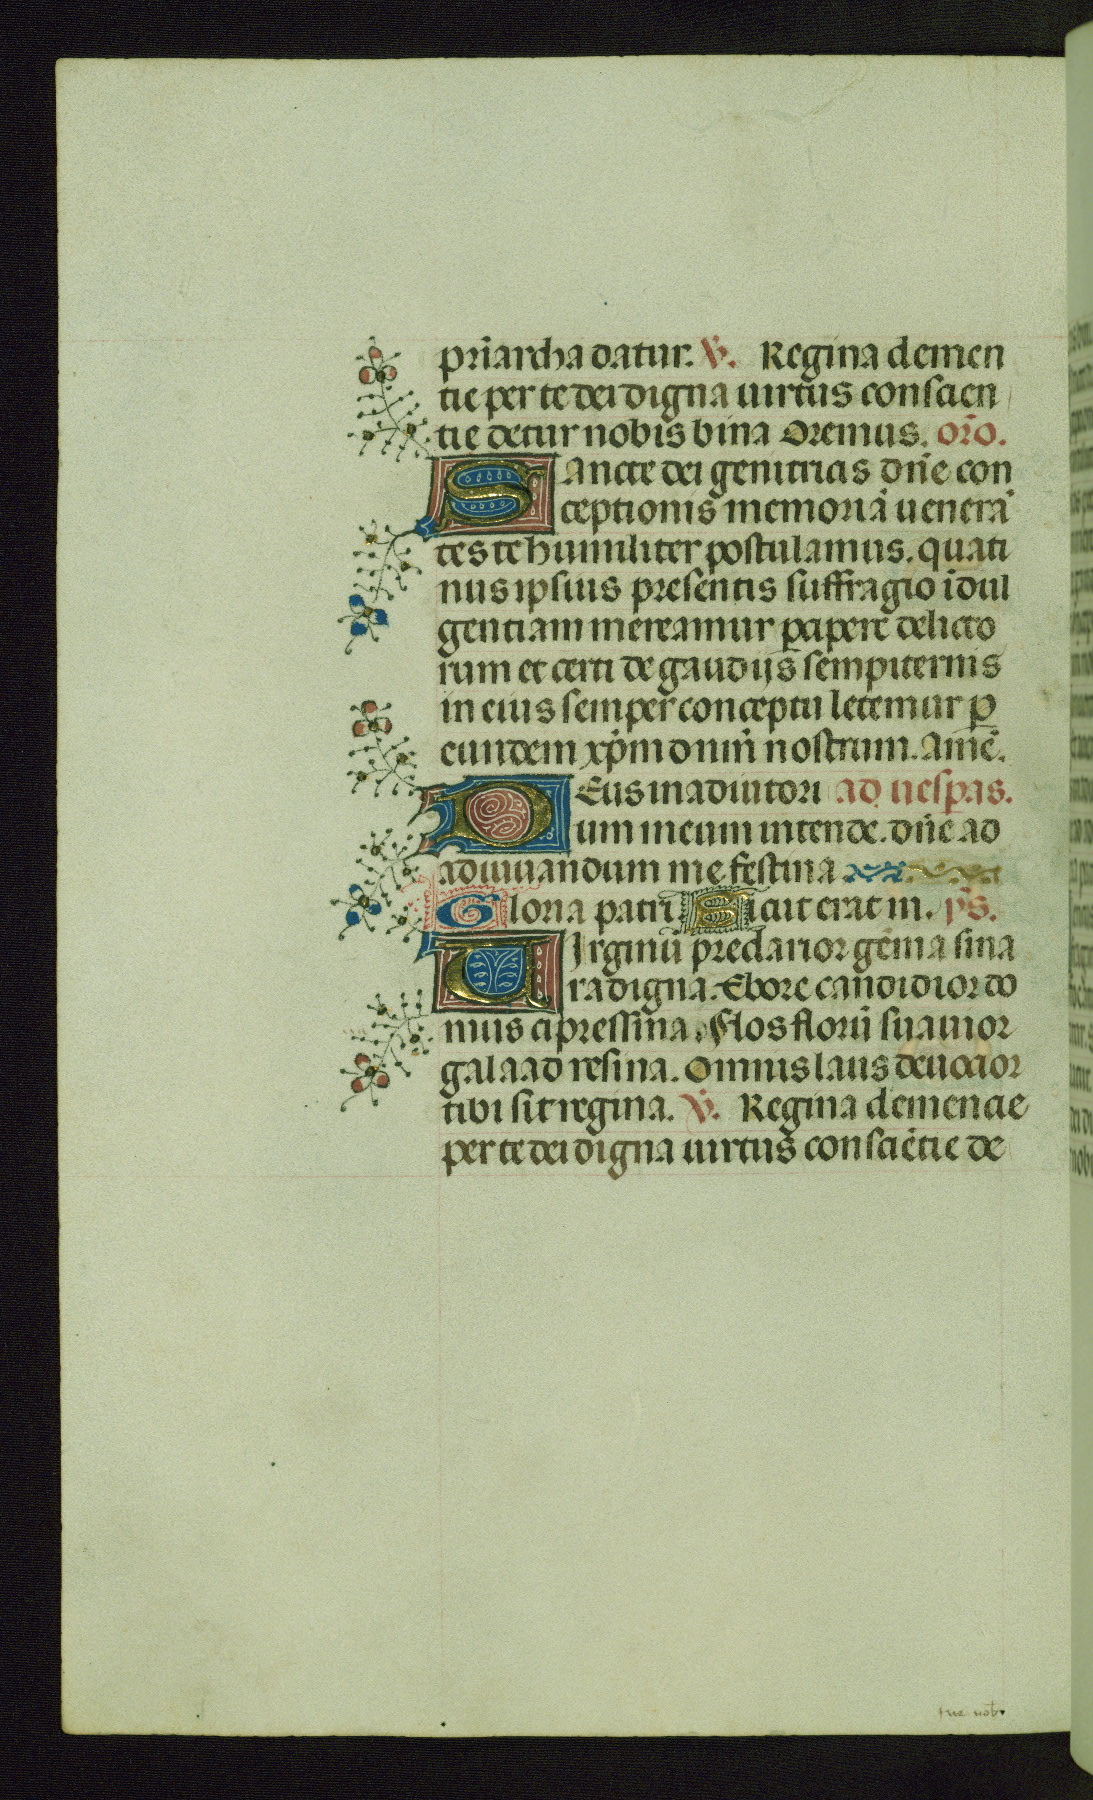 prīarcha datur. V̄. Regina clemen
tie per te dei digna uirtus conscien
tie detur nobis bina Oremus. orō.
Sancte dei genitricis dn̄e con
ceptionis memoriā uenerā
tes te humiliter postulamus. quati
nus ipsius presentis suffragio īdul
gentiam mereamur ꝑcipere delicto
rum et certi de gaudijs sempiternis
in eius semper conceptu letemur ꝑ
eundem xp̄m dnm̄ nostrum. amē.
Deus in adiutori ad uesp̄as.
um meum intende. dn̄e ad
adiuuandum me festina
Gloria patri. Sicut erat in. ps̄.
Virginū preclarior gēma sina
ra digna. Ebore candidior do
mus cipressina. Flos florū suauior
galaad resina. Omnis laus deuocior
tibi sit regina. V̄. Regina clemencie
per te dei digna uirtus consciētie de
tur nob.